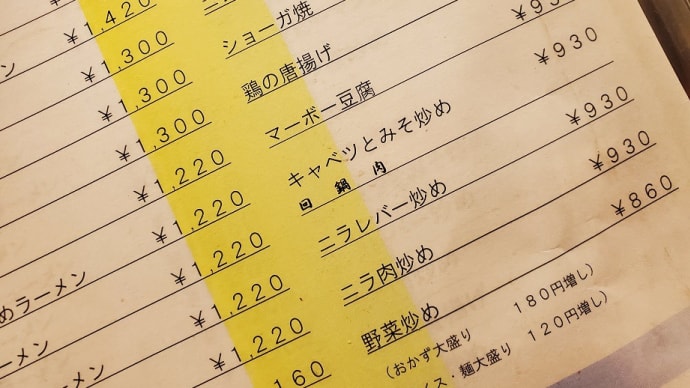 ¥1,420
¥1,300
¥1,300
¥1,300
¥1,220
¥1,220
¥1,220
めラーメン ¥1,220
ーメン ¥1,220
ーメン
160
ショーガ焼
鶏の唐揚げ
マーボー豆腐
キャベツとみそ炒め ¥930
回鍋肉
ニラレバー炒め ¥930
ニラ肉炒め ¥930
野菜炒め ¥860
(おかず大盛り 180円増し)
イス・麺大盛り 120円増し)